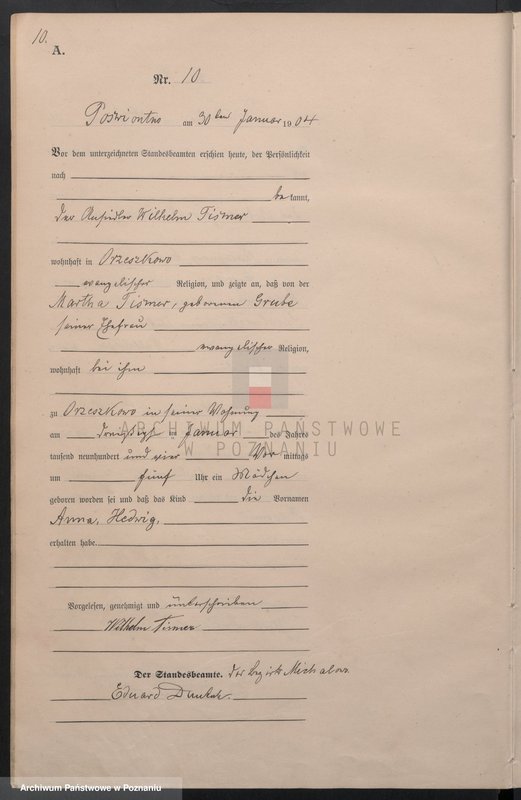 10.
A.
Nr. 10
am 30ten Januar 1904
Vor dem unterzeichneten Standesbeamten erschien heute, der Persönlichkeit
nach
be kannt,
der Ansiedler Wilhelm Tismer
wohnhaft in Orzeszkowo
evangelischer Religion, und zeigte an, daß von der
Martha Tismer, geborenen Grube
seiner Ehefrau
evangelischer Religion,
wohnhaft bei ihm
zu Orzeszkowo in seiner Wohnung
am dreißigst en Januar des Jahres
tausend neunhundert und vier Vor mittags
um fünf Uhr ein Mädchen
geboren worden sei und daß das Kind die Vornamen
Anna, Hedwig,
erhalten habe.
Vorgelesen, genehmigt und unterschrieben
Wilhelm Tismer
Der Standesbeamte. der Bezirk
Eduard
ARCHIWUM PAŃSTWOWE
W POZNANIU
Archiwum Państwowe w Poznaniu